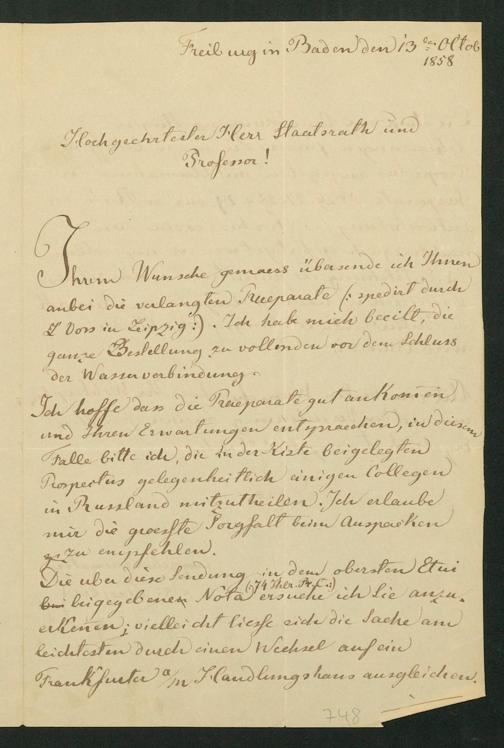 Freiburg in Baden den 13 ten Octob
1858
Hochgeehrtester Herr Staatsrath und
Professor!
Ihrem Wunsche gemaess übersende ich Ihnen
anbei die verlangten Praeparate (: spedirt durch
L Voss in Leipzig:). Ich habe mich beeilt, die
ganze Bestellung zu vollenden vor dem Schluss
der Wasserverbindung.
Ich hoffe dass die Praeparate gut ankomen
und Ihren Erwartungen entspraechen, in diesem
Falle bitte ich, die in der Kiste beigelegten
Prospectus gelegenheitlich einigen Collegen
in Russland mitzutheilen. Ich erlaube
mir die groesste Sorgfalt beim Auspacken
zu empfehlen.
Die uber diese Sendung in dem obersten Etui
beigegebenen Nota (:74 Thlr. Pr. C.:) ersuche ich Sie anzu-
erkenen; vielleicht liesse sich die Sache am
leichtesten durch einen Wechsel auf ein
Frankfurter a/m Handlungshaus ausgleichen.
748